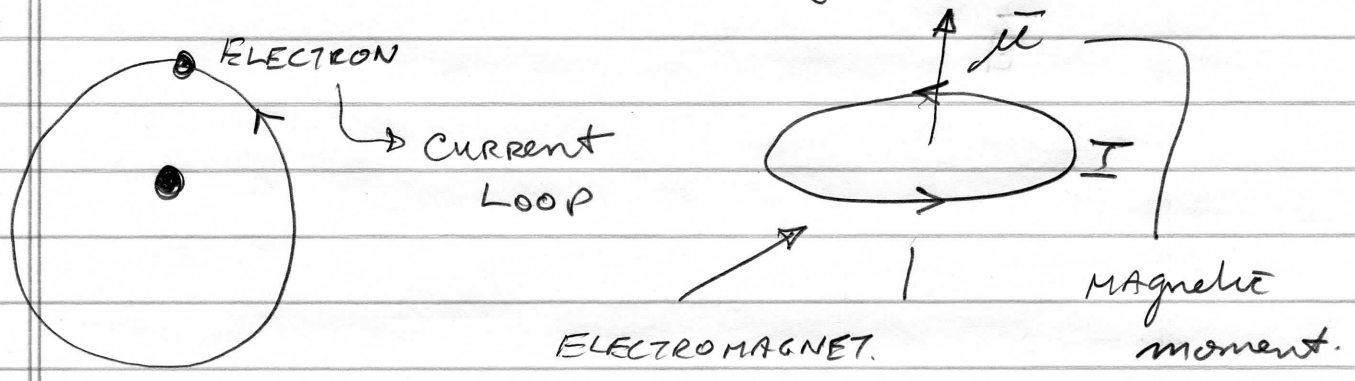 ELECTRON
CURRENT
LOOP
μ̄
I
ELECTROMAGNET.
MAgnetic
moment.